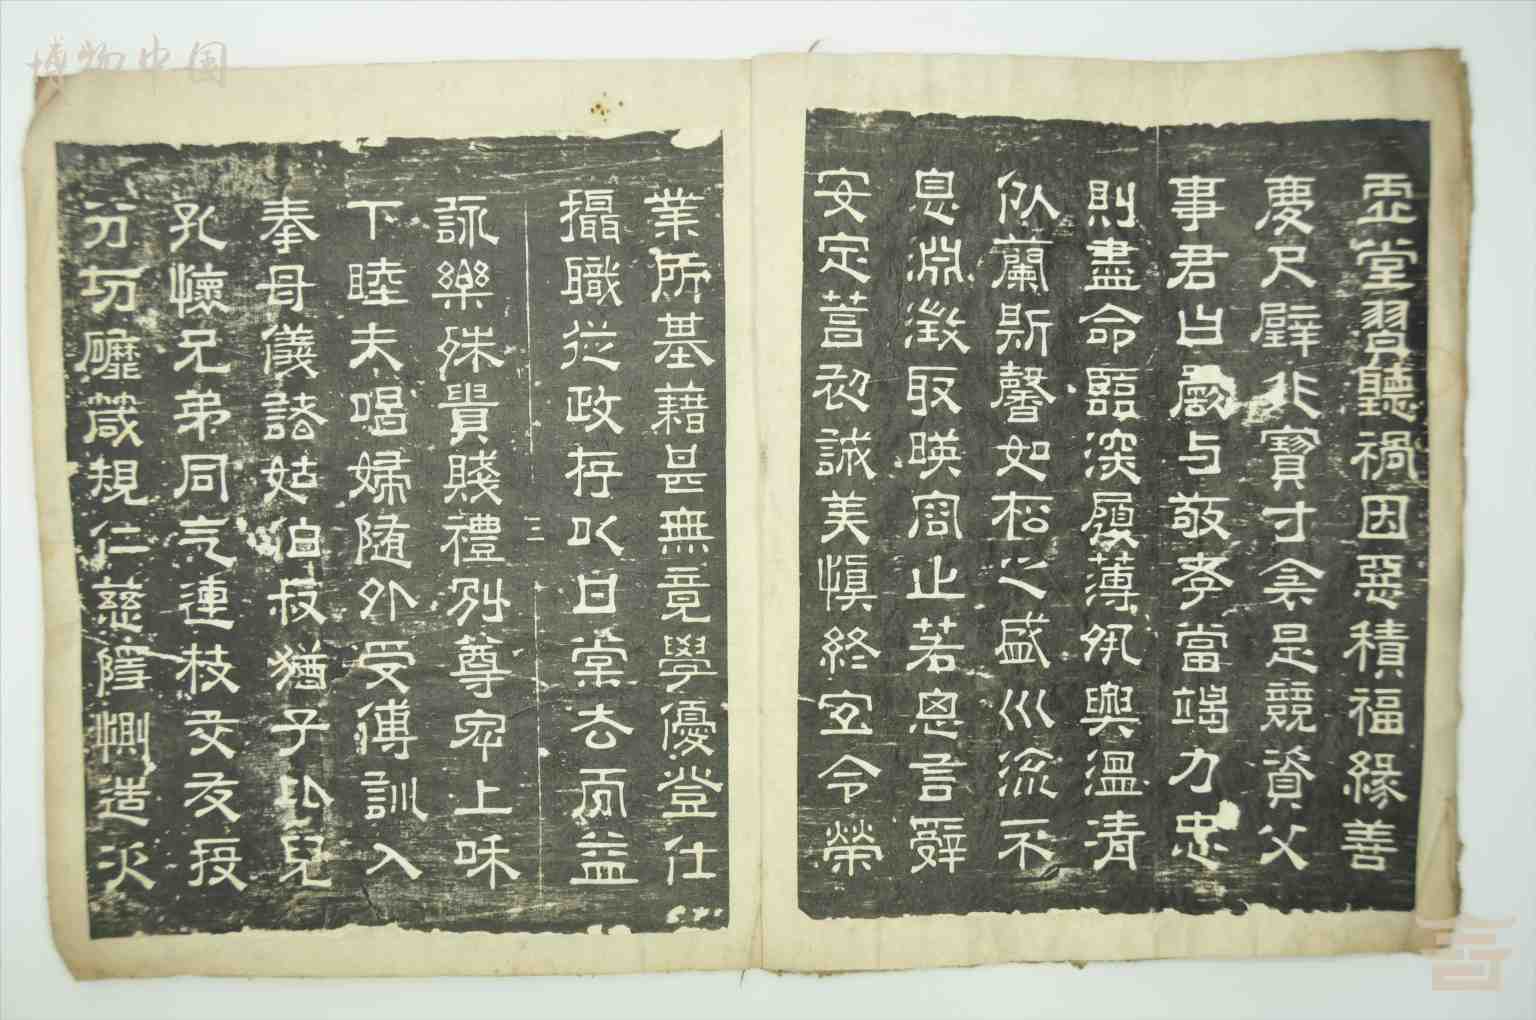 博物中国
虛堂習聽禍因惡積福緣善
慶尺璧非寶寸侌是競資父
事君曰嚴与敬孝當竭力忠
則盡命臨深履薄夙興溫凊
似蘭斯馨如松之盛川流不
息淵澂取暎容止若思言辭
安定篤初誠美慎終宜令榮
業所基藉甚無竟學優登仕
攝職從政存以甘棠去而益
三
詠樂殊貴賤禮別尊卑上咊
下睦夫唱婦隨外受傅訓入
奉母儀諸姑伯叔猶子比兒
孔懷兄弟同气連枝交友投
分切磨箴規仁慈隱惻造次